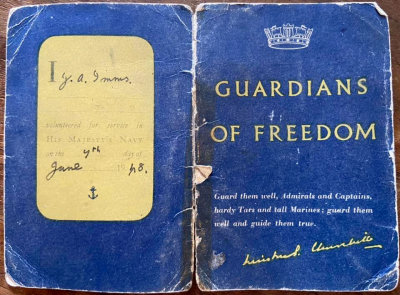 I J. A. Imms.
volunteered for service in
HIS MAJESTY'S NAVY
on the 4th day of
June 19 48.
GUARDIANS
OF FREEDOM
Guard them well, Admirals and Captains,
hardy Tars and tall Marines: guard them
well and guide them true.
Winston S. Churchill